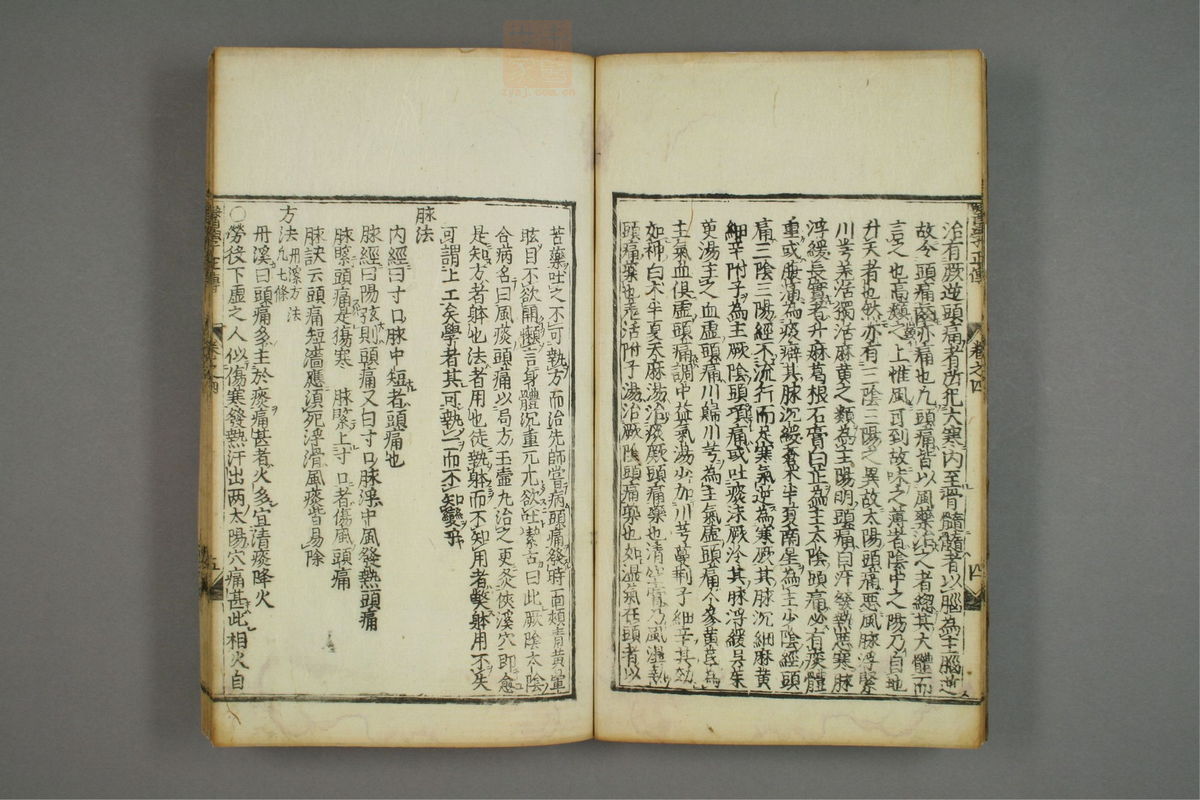 治有厥逆頭痛者所犯大寒內至骨髓髓者以腦為主腦逆
故令頭痛齒亦痛也凡頭痛皆以風藥治之者總其大體而
言之也高巔之上惟風可到故味之薄者陰中之陽乃自地
升天者也然亦有三陰三陽之異故太陽頭痛惡風脉浮緊
川芎羌活獨活麻黃之類為主陽明頭痛自汗發熱惡寒脉
浮緩長實者升麻葛根石膏白芷為主太陰頭痛必有痰體
重或腹痛為痰癖其脉沉緩蒼朮半夏南星為主少陰經頭
痛三陰三陽經不流行而足寒氣逆為寒厥其脉沉細麻黃
細辛附子為主厥陰頭項痛或吐痰沫厥冷其脉浮緩吳茱
萸湯主之血虛頭痛川歸川芎為主氣虛頭痛人參黃芪為
主氣血俱虛頭痛調中益氣湯少加川芎蔓荊子細辛其効
如神白朮半夏天麻湯治痰厥頭痛藥也清空膏乃風濕熱
頭痛藥也羌活附子湯治厥陰頭痛藥也如濕氣在頭者以
卷之四
四
苦藥吐之不可執方而治先師嘗病頭痛發時面頰青黃暈
眩目不欲開懶言身體沉重兀兀欲吐潔古曰此厥陰太陰
合病名曰風痰頭痛以局方玉壺丸治之更灸俠溪穴即愈
是知方者躰也法者用也徒執躰而不知用者弊躰用不失
可謂上工矣學者其可執一而不知變乎
脉法
內經曰寸口脉中短者頭痛也
脉經曰陽弦則頭痛又曰寸口脉浮中風發熱頭痛
脉緊頭痛是傷寒 脉緊上寸口者傷風頭痛
脉訣云頭痛短濇應須死浮滑風痰皆易除
方法丹溪方法凡七條
丹溪曰頭痛多主於痰痛甚者火多宜清痰降火
○勞役下虛之人似傷寒發熱汗出兩太陽穴痛甚此相火自
醫學正傳
卷之四
五
zysj.com.cn